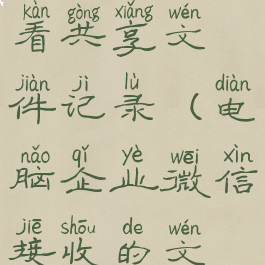 kàn gòng xiǎng wén
看共享文
jiàn jì lù diàn
件记录（电
nǎo qǐ yè wēi xìn
脑企业微信
jiē shōu de wén
接收的文